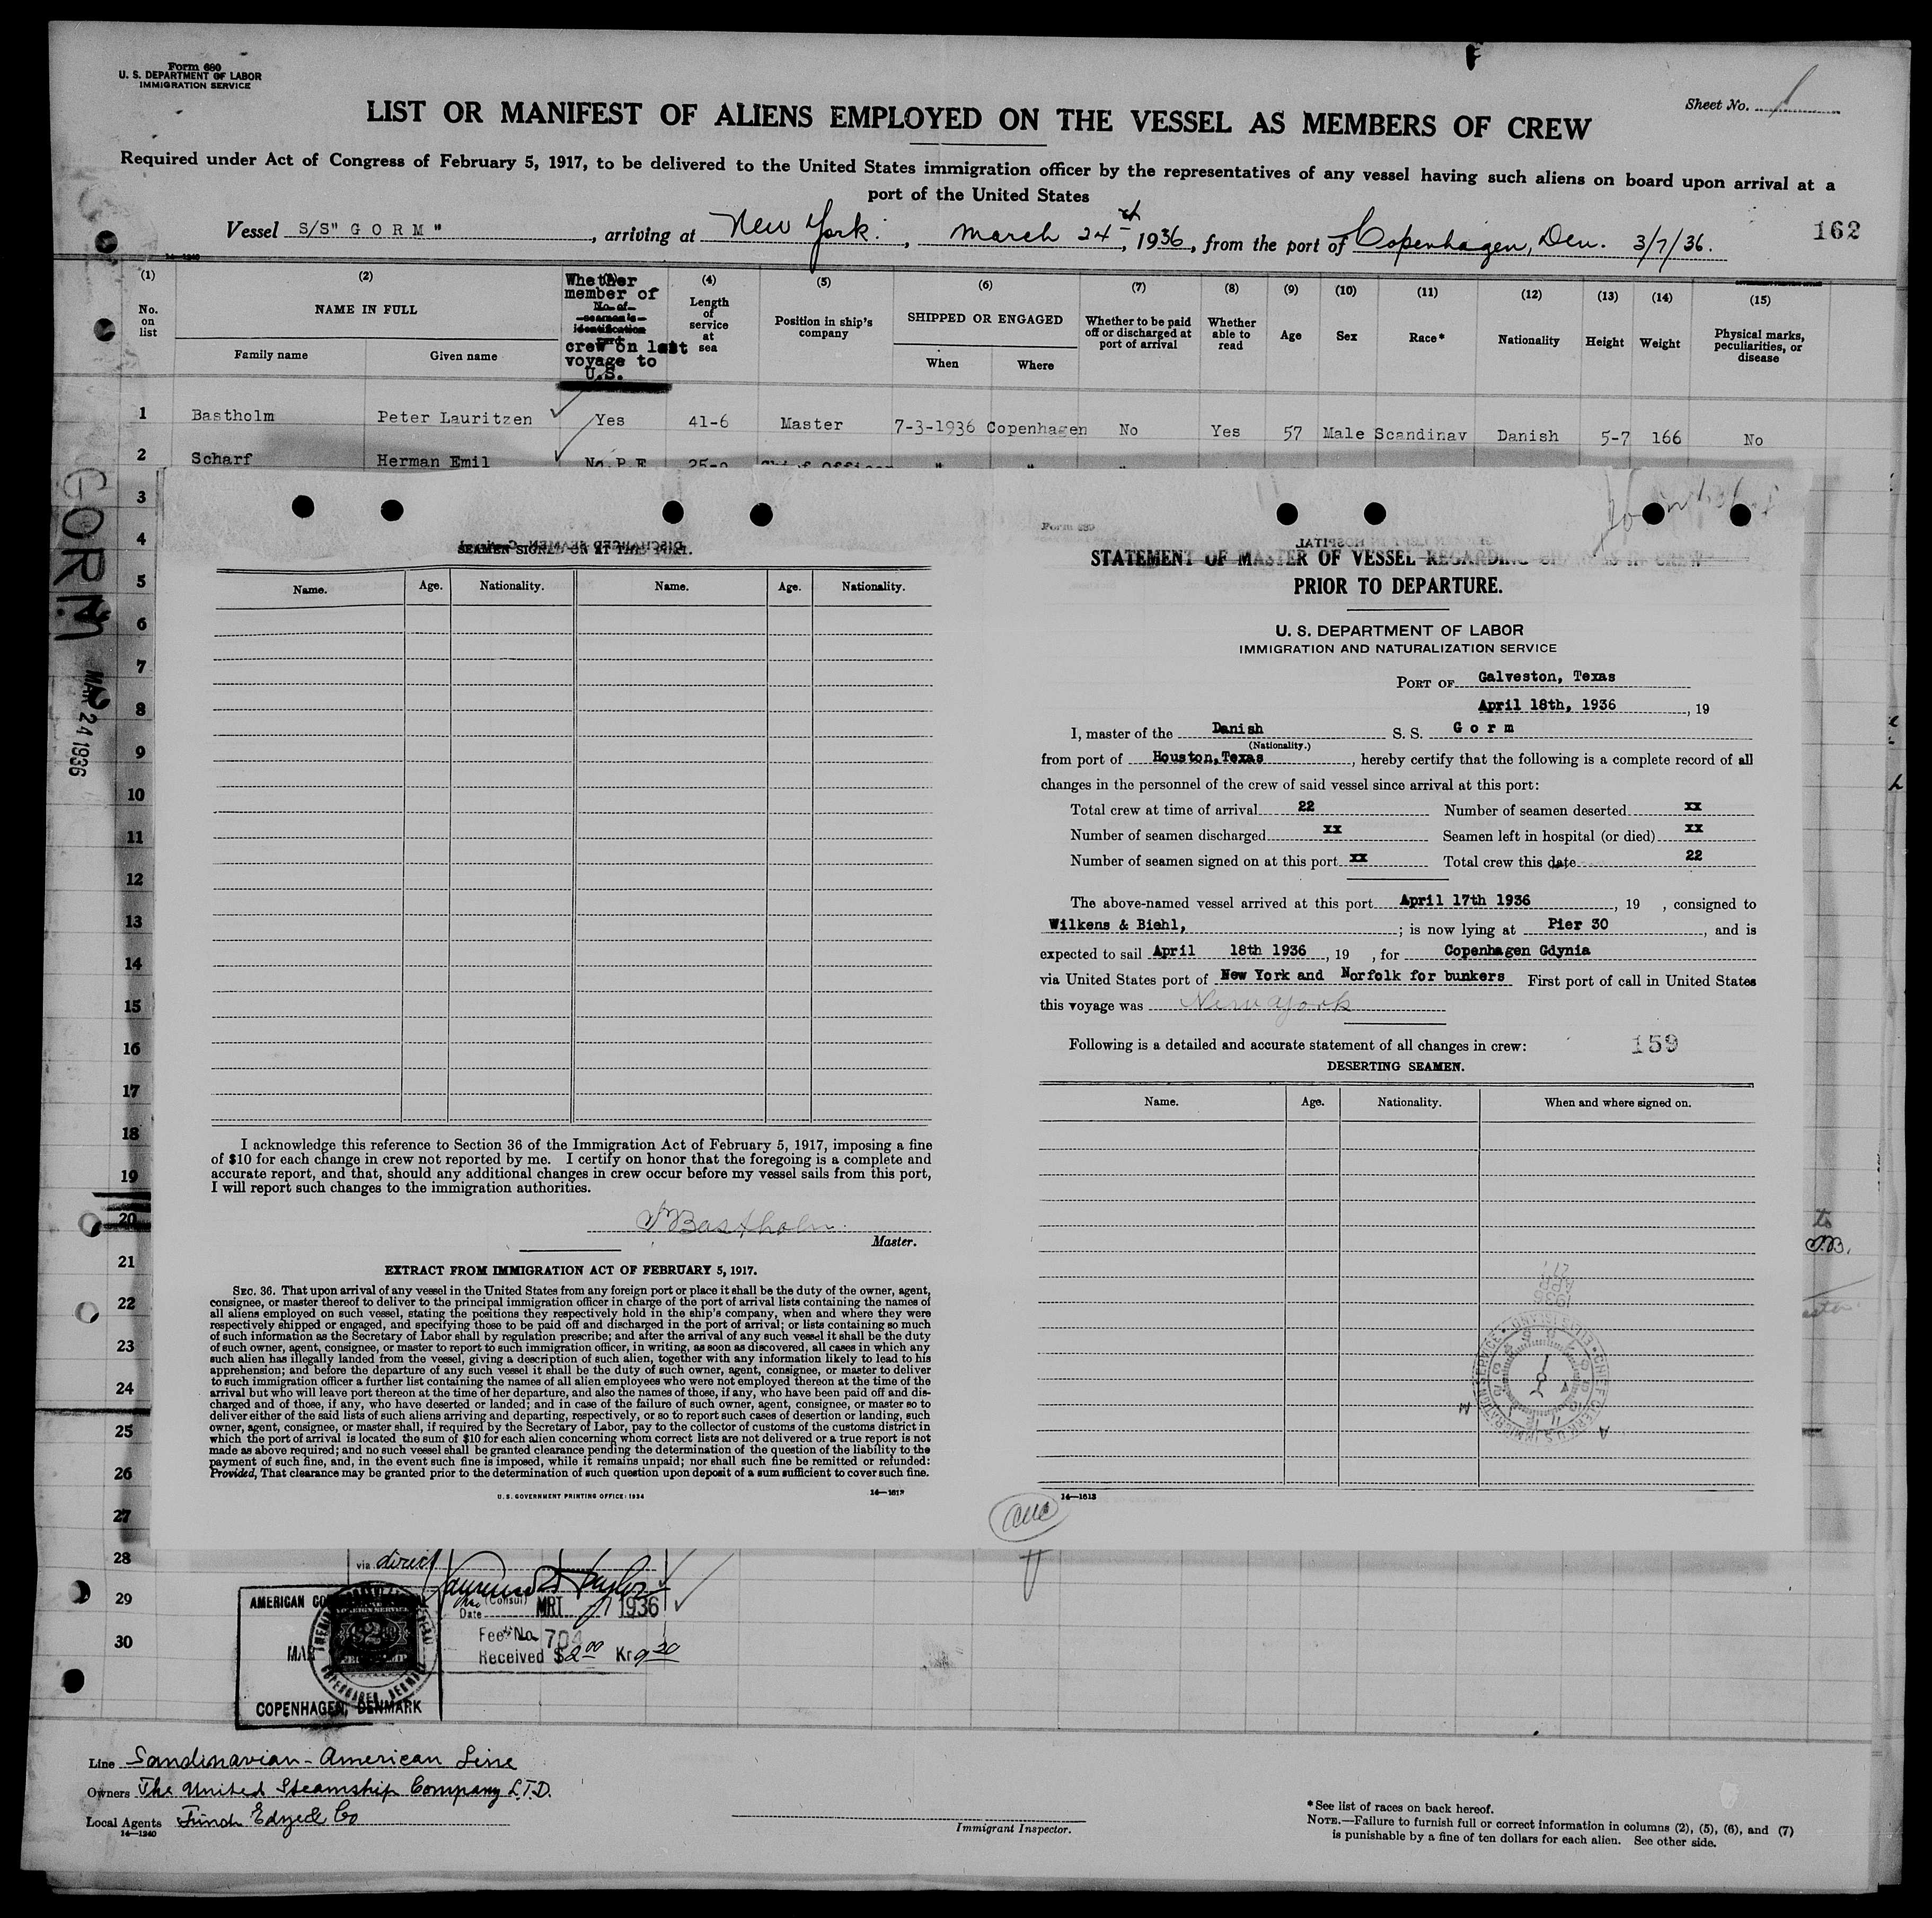 Form 680
U. S. DEPARTMENT OF LABOR
IMMIGRATION SERVICE
Sheet No. 1
LIST OR MANIFEST OF ALIENS EMPLOYED ON THE VESSEL AS MEMBERS OF CREW
Required under Act of Congress of February 5, 1917, to be delivered to the United States immigration officer by the representatives of any vessel having such aliens on board upon arrival at a
port of the United States
Vessel S/S" G O R M ", arriving at New York., March 24, 1936, from the port of Copenhagen, Den. 3/7/36.
162
14—1240
(1) (2) (4) (5) (6) (7) (8) (9) (10) (11) (12) (13) (14) (15)
No. on list
NAME IN FULL
Family name Given name
Whether member of crew on last voyage to U.S.
No. of seaman's identification
Length of service at sea
Position in ship's company
SHIPPED OR ENGAGED
When Where
Whether to be paid off or discharged at port of arrival
Whether able to read
Age
Sex
Race*
Nationality
Height
Weight
Physical marks, peculiarities, or disease
1 Bastholm Peter Lauritzen Yes 41-6 Master 7-3-1936 Copenhagen No Yes 57 Male Scandinav Danish 5-7 166 No
2 Scharf Herman Emil No.P.E Chief Officer " " "
3
4
5
6
7
8
9
10
11
12
13
14
15
16
17
18
19
20
21
22
23
24
25
26
27
28
29
30
GORM
MAR 24 1936
Name. Age. Nationality. Name. Age. Nationality.
I acknowledge this reference to Section 36 of the Immigration Act of February 5, 1917, imposing a fine
of $10 for each change in crew not reported by me. I certify on honor that the foregoing is a complete and
accurate report, and that, should any additional changes in crew occur before my vessel sails from this port,
I will report such changes to the immigration authorities.
Bastholm
Master.
EXTRACT FROM IMMIGRATION ACT OF FEBRUARY 5, 1917.
SEC. 36. That upon arrival of any vessel in the United States from any foreign port or place it shall be the duty of the owner, agent,
consignee, or master thereof to deliver to the principal immigration officer in charge of the port of arrival lists containing the names of
all aliens employed on such vessel, stating the positions they respectively hold in the ship's company, when and where they were
respectively shipped or engaged, and specifying those to be paid off and discharged in the port of arrival; or lists containing so much
of such information as the Secretary of Labor shall by regulation prescribe; and after the arrival of any such vessel it shall be the duty
of such owner, agent, consignee, or master to report to such immigration officer, in writing, as soon as discovered, all cases in which any
such alien has illegally landed from the vessel, giving a description of such alien, together with any information likely to lead to his
apprehension; and before the departure of any such vessel it shall be the duty of such owner, agent, consignee, or master to deliver
to such immigration officer a further list containing the names of all alien employees who were not employed thereon at the time of the
arrival but who will leave port thereon at the time of her departure, and also the names of those, if any, who have been paid off and dis-
charged and of those, if any, who have deserted or landed; and in case of the failure of such owner, agent, consignee, or master so to
deliver either of the said lists of such aliens arriving and departing, respectively, or so to report such cases of desertion or landing, such
owner, agent, consignee, or master shall, if required by the Secretary of Labor, pay to the collector of customs of the customs district in
which the port of arrival is located the sum of $10 for each alien concerning whom correct lists are not delivered or a true report is not
made as above required; and no such vessel shall be granted clearance pending the determination of the question of the liability to the
payment of such fine, and, in the event such fine is imposed, while it remains unpaid; nor shall such fine be remitted or refunded:
Provided, That clearance may be granted prior to the determination of such question upon deposit of a sum sufficient to cover such fine.
U. S. GOVERNMENT PRINTING OFFICE: 1934
Form 689
STATEMENT OF MASTER OF VESSEL REGARDING CHANGES IN CREW
PRIOR TO DEPARTURE.
U. S. DEPARTMENT OF LABOR
IMMIGRATION AND NATURALIZATION SERVICE
PORT OF Galveston, Texas
April 18th, 1936, 19
I, master of the Danish S. S. G o r m
(Nationality.)
from port of Houston,Texas, hereby certify that the following is a complete record of all
changes in the personnel of the crew of said vessel since arrival at this port:
Total crew at time of arrival 22 Number of seamen deserted xx
Number of seamen discharged xx Seamen left in hospital (or died) xx
Number of seamen signed on at this port xx Total crew this date 22
The above-named vessel arrived at this port April 17th 1936, 19 , consigned to
Wilkens & Biehl, ; is now lying at Pier 30, and is
expected to sail April 18th 1936, 19 , for Copenhagen Gdynia
via United States port of New York and Norfolk for bunkers First port of call in United States
this voyage was New York
Following is a detailed and accurate statement of all changes in crew:
159
DESERTING SEAMEN.
Name. Age. Nationality. When and where signed on.
14—1613
via direct
(Consul)
Date MRT 7 1936
Fee No. 704
Received $2 00 Kr 9 20
AMERICAN
MAR
COPENHAGEN, DENMARK
Line Sandinavian-American Line
Owners The United Steamship Company LTD.
Local Agents Funch Edye & Co
14—1240
Immigrant Inspector.
*See list of races on back hereof.
NOTE.—Failure to furnish full or correct information in columns (2), (5), (6), and (7)
is punishable by a fine of ten dollars for each alien. See other side.